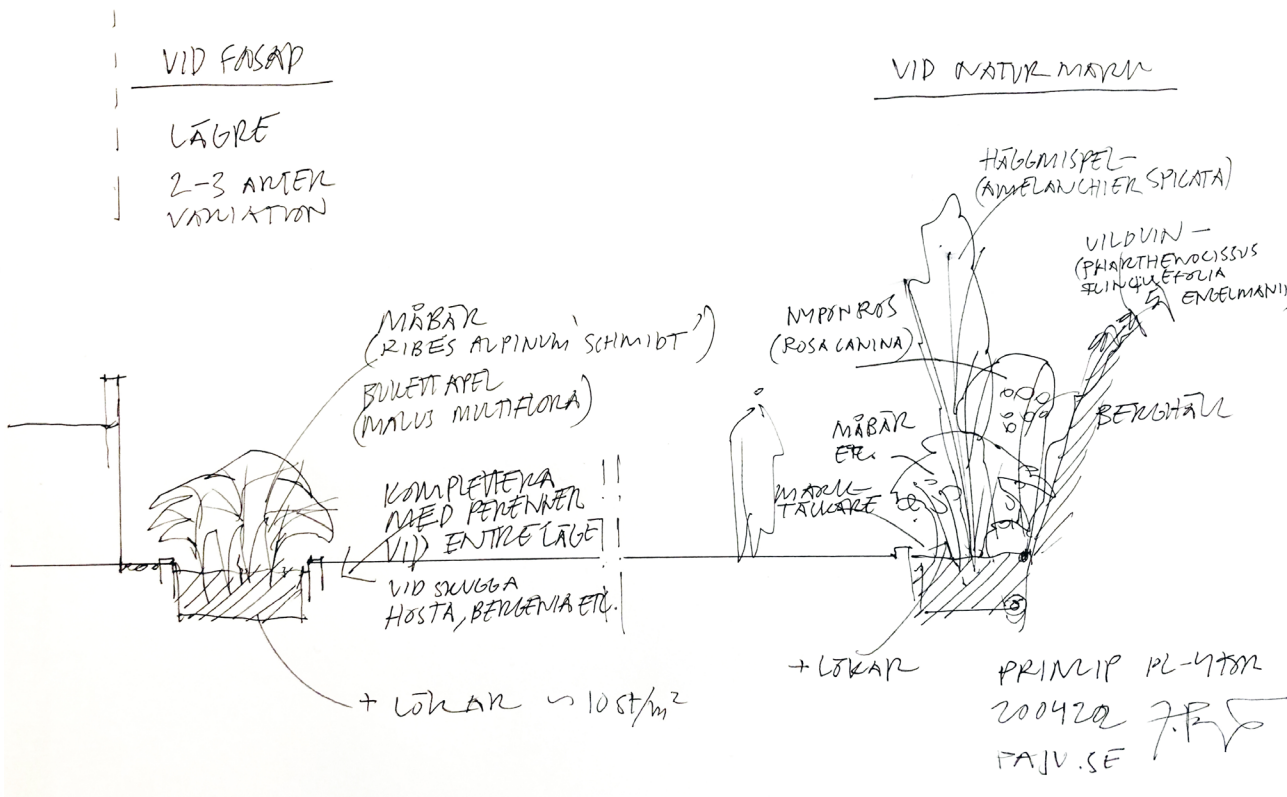 VID FASAD
LÄGRE
2-3 ARTER
VARIATION
MÅBÄR
(RIBES ALPINUM 'SCHMIDT')
BUKETTAPEL
(MALUS MULTIFLORA)
KOMPLETTERA
MED PERENNER
VID ENTRELÄGE
VID SKUGGA
HOSTA, BERGENIA ETC.
+ LÖKAR ~ 10 st/m²
VID NATURMARK
HÄGGMISPEL
(AMELANCHIER SPICATA)
VILDVIN
(PHARTHENOCISSUS
QUINQUEFOLIA
ENGELMANII
NYPONROS
(ROSA CANINA)
BERGHÄLL
MÅBÄR
ETC.
MARK-
TÄCKARE
+ LÖKAR
PRINCIP PL-YTOR
200420
PAJV.SE